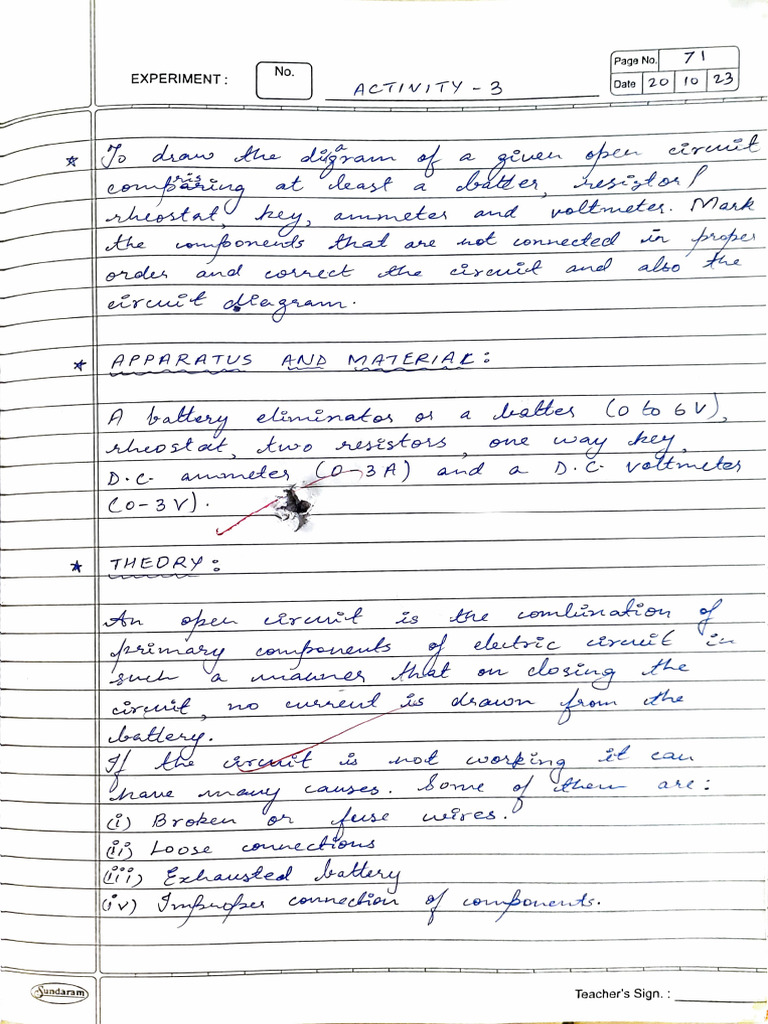 Page No. 71
EXPERIMENT : No. ACTIVITY - 3
Date 20 10 23
* To draw the diagram of a given open circuit
comprising at least a batter, resistor/
rheostat, key, ammeter and voltmeter. Mark
the components that are not connected in proper
order and correct the circuit and also the
circuit diagram.
* APPARATUS AND MATERIAL :
A battery eliminator or a batter (0 to 6V),
rheostat, two resistors, one way key,
D.C. ammeter (0-3A) and a D.C. voltmeter
(0-3V).
* THEORY :
An open circuit is the combination of
primary components of electric circuit in
such a manner that on closing the
circuit, no current is drawn from the
battery.
If the circuit is not working it can
have many causes. Some of them are :
(i) Broken or fuse wires.
(ii) Loose connections
(iii) Exhausted battery
(iv) Improper connection of components.
Sundaram
Teacher's Sign. :